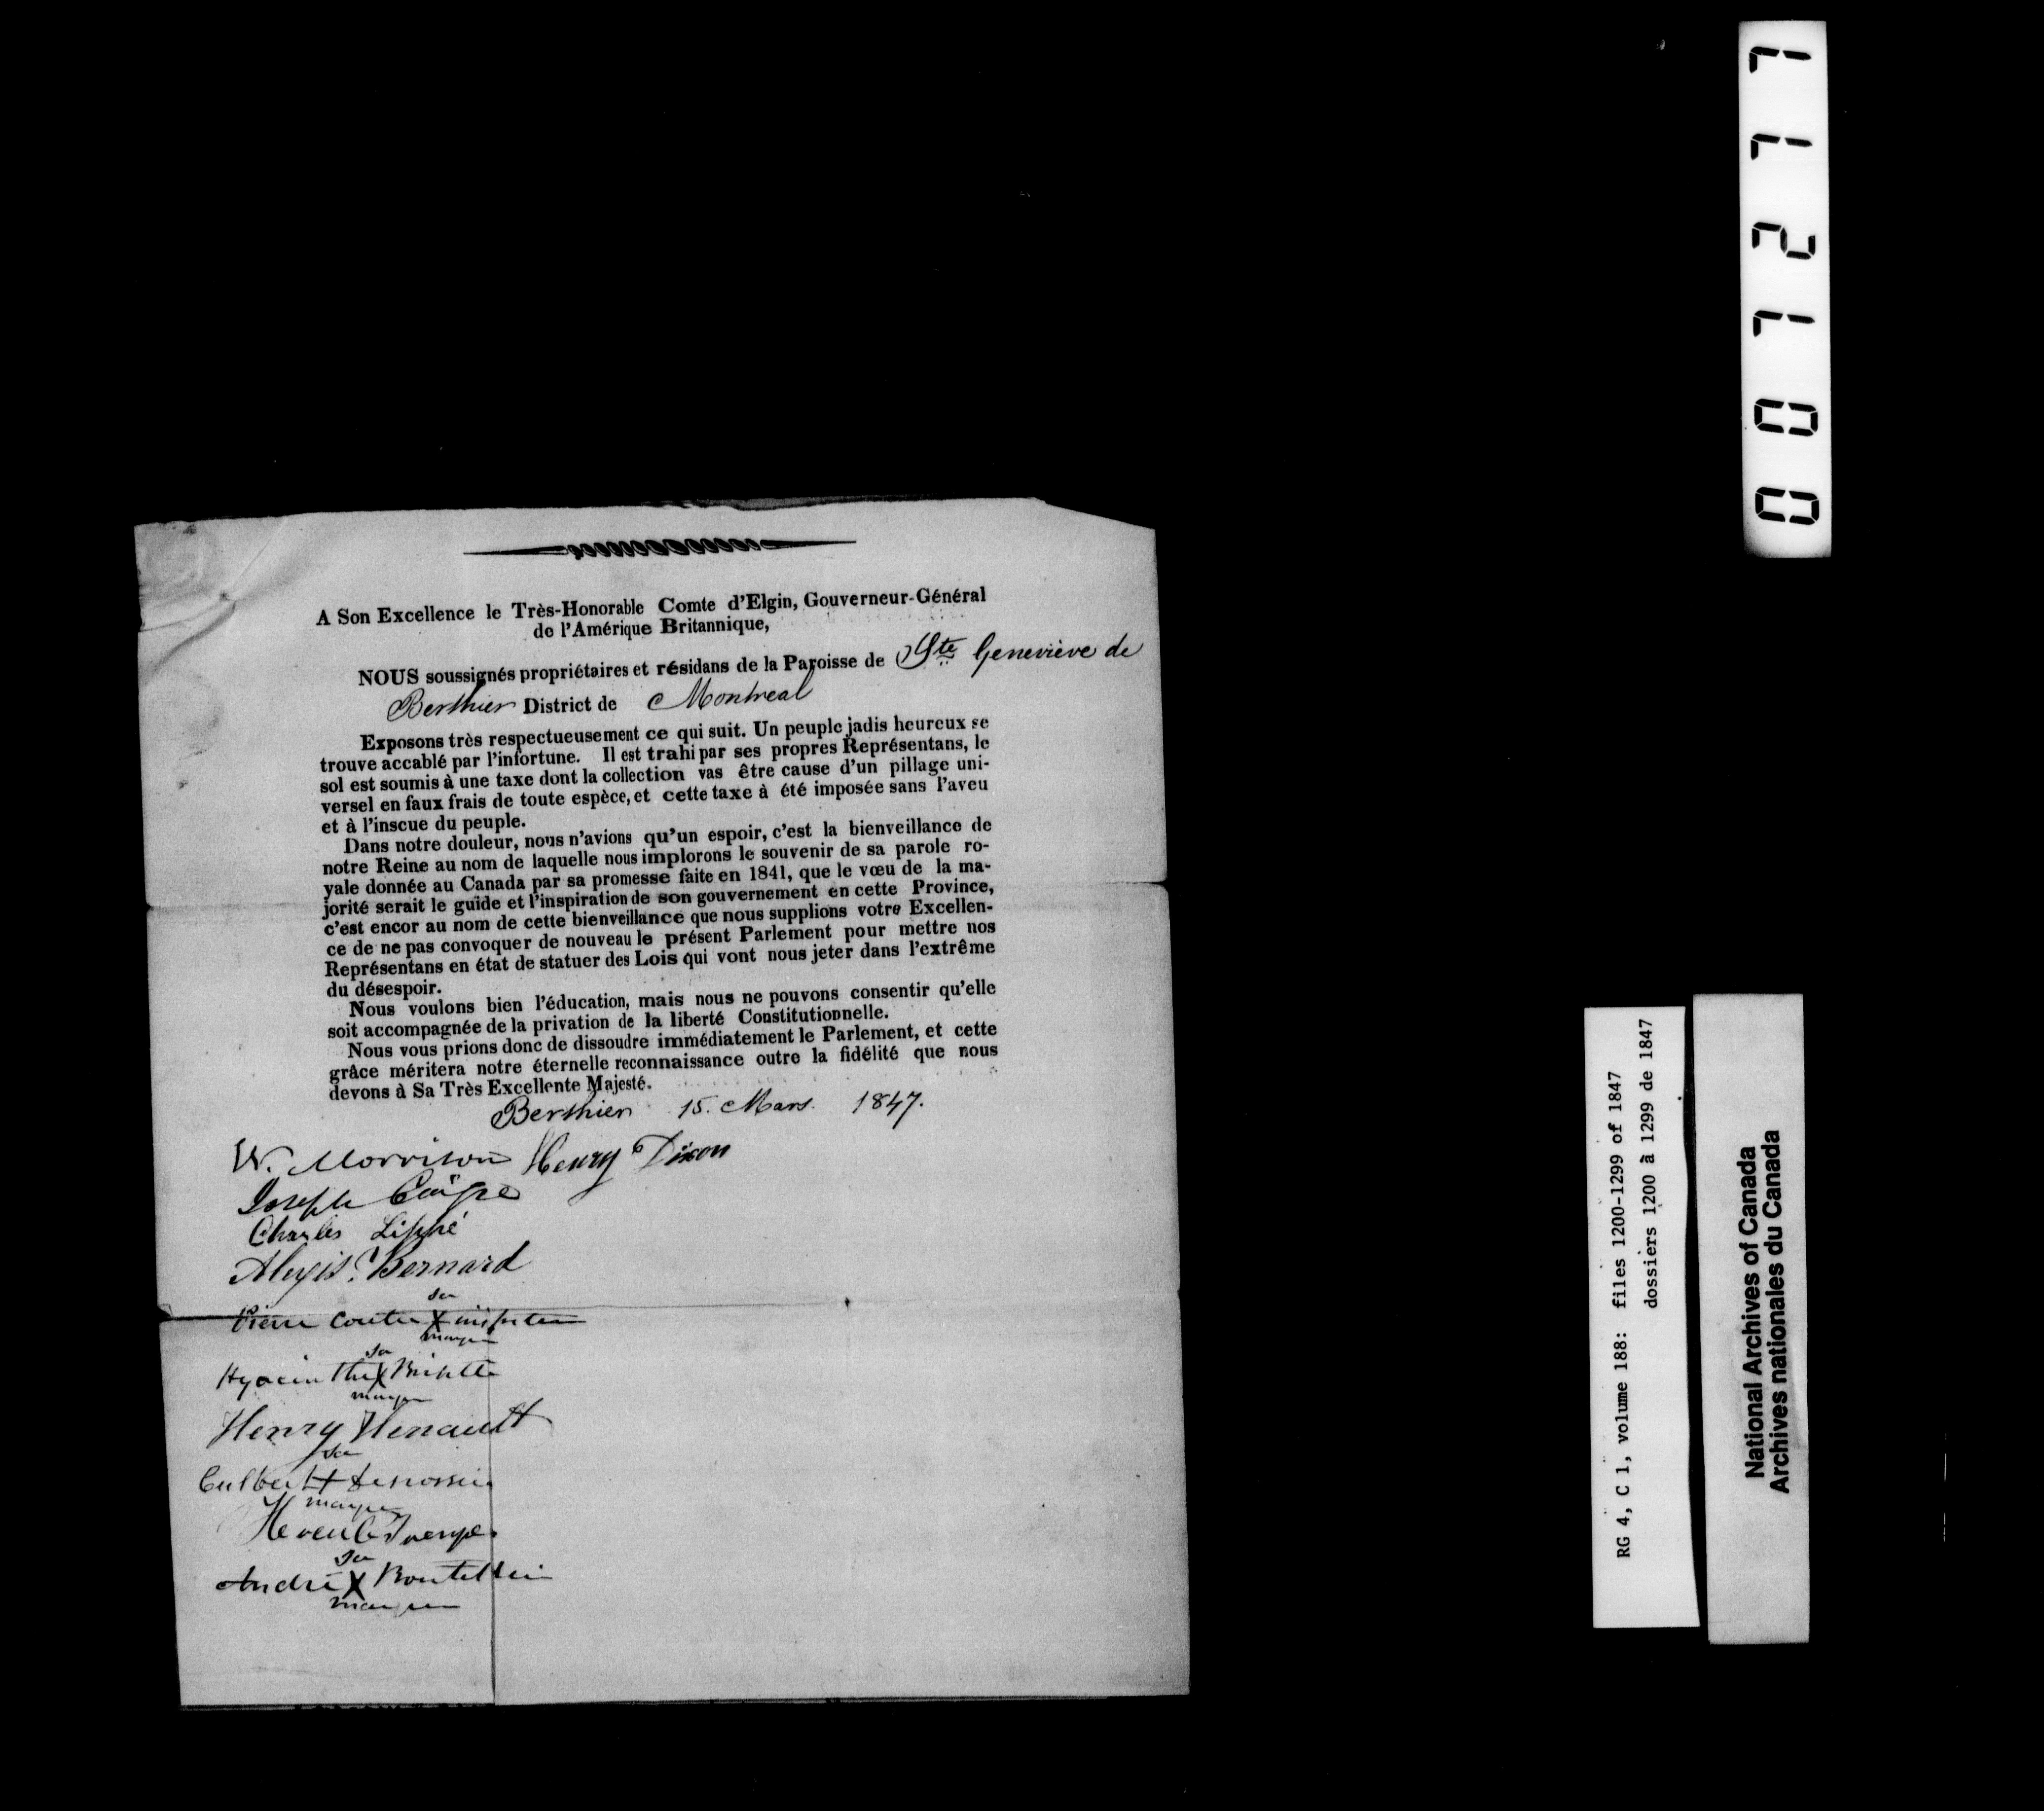 A Son Excellence le Très-Honorable Comte d'Elgin, Gouverneur-Général
de l'Amérique Britannique,
NOUS soussignés propriétaires et résidans de la Paroisse de Ste Geneviève de
Berthier District de Montreal
Exposons très respectueusement ce qui suit. Un peuple jadis heureux se
trouve accablé par l'infortune. Il est trahi par ses propres Représentans, le
sol est soumis à une taxe dont la collection vas être cause d'un pillage uni-
versel en faux frais de toute espèce, et cette taxe à été imposée sans l'aveu
et à l'inscue du peuple.
Dans notre douleur, nous n'avions qu'un espoir, c'est la bienveillance de
notre Reine au nom de laquelle nous implorons le souvenir de sa parole ro-
yale donnée au Canada par sa promesse faite en 1841, que le vœu de la ma-
jorité serait le guide et l'inspiration de son gouvernement en cette Province,
c'est encor au nom de cette bienveillance que nous supplions votre Excellen-
ce de ne pas convoquer de nouveau le présent Parlement pour mettre nos
Représentans en état de statuer des Lois qui vont nous jeter dans l'extrême
du désespoir.
Nous voulons bien l'éducation, mais nous ne pouvons consentir qu'elle
soit accompagnée de la privation de la liberté Constitutionnelle.
Nous vous prions donc de dissoudre immédiatement le Parlement, et cette
grâce méritera notre éternelle reconnaissance outre la fidélité que nous
devons à Sa Très Excellente Majesté.
Berthier 15. Mars. 1847.
W. Morrison Henry Dixon
Joseph
Charles Lippé
Alexis Bernard
sa
Pierre X
marque
sa
Hyacinthe X
marque
Henry Henault
sa
marque
sa
André X
marque
001211
RG 4, C 1, volume 188: files 1200-1299 of 1847
dossiers 1200 à 1299 de 1847
National Archives of Canada
Archives nationales du Canada